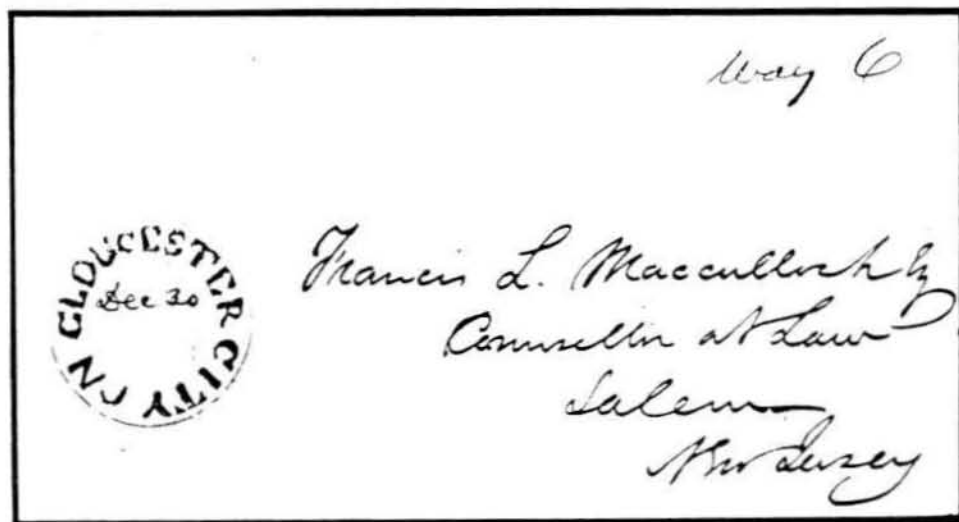 Way 6
GLOUCESTER CITY NJ
Dec 30
Francis L. Macculloch Esq
Counsellor at Law
Salem
New Jersey